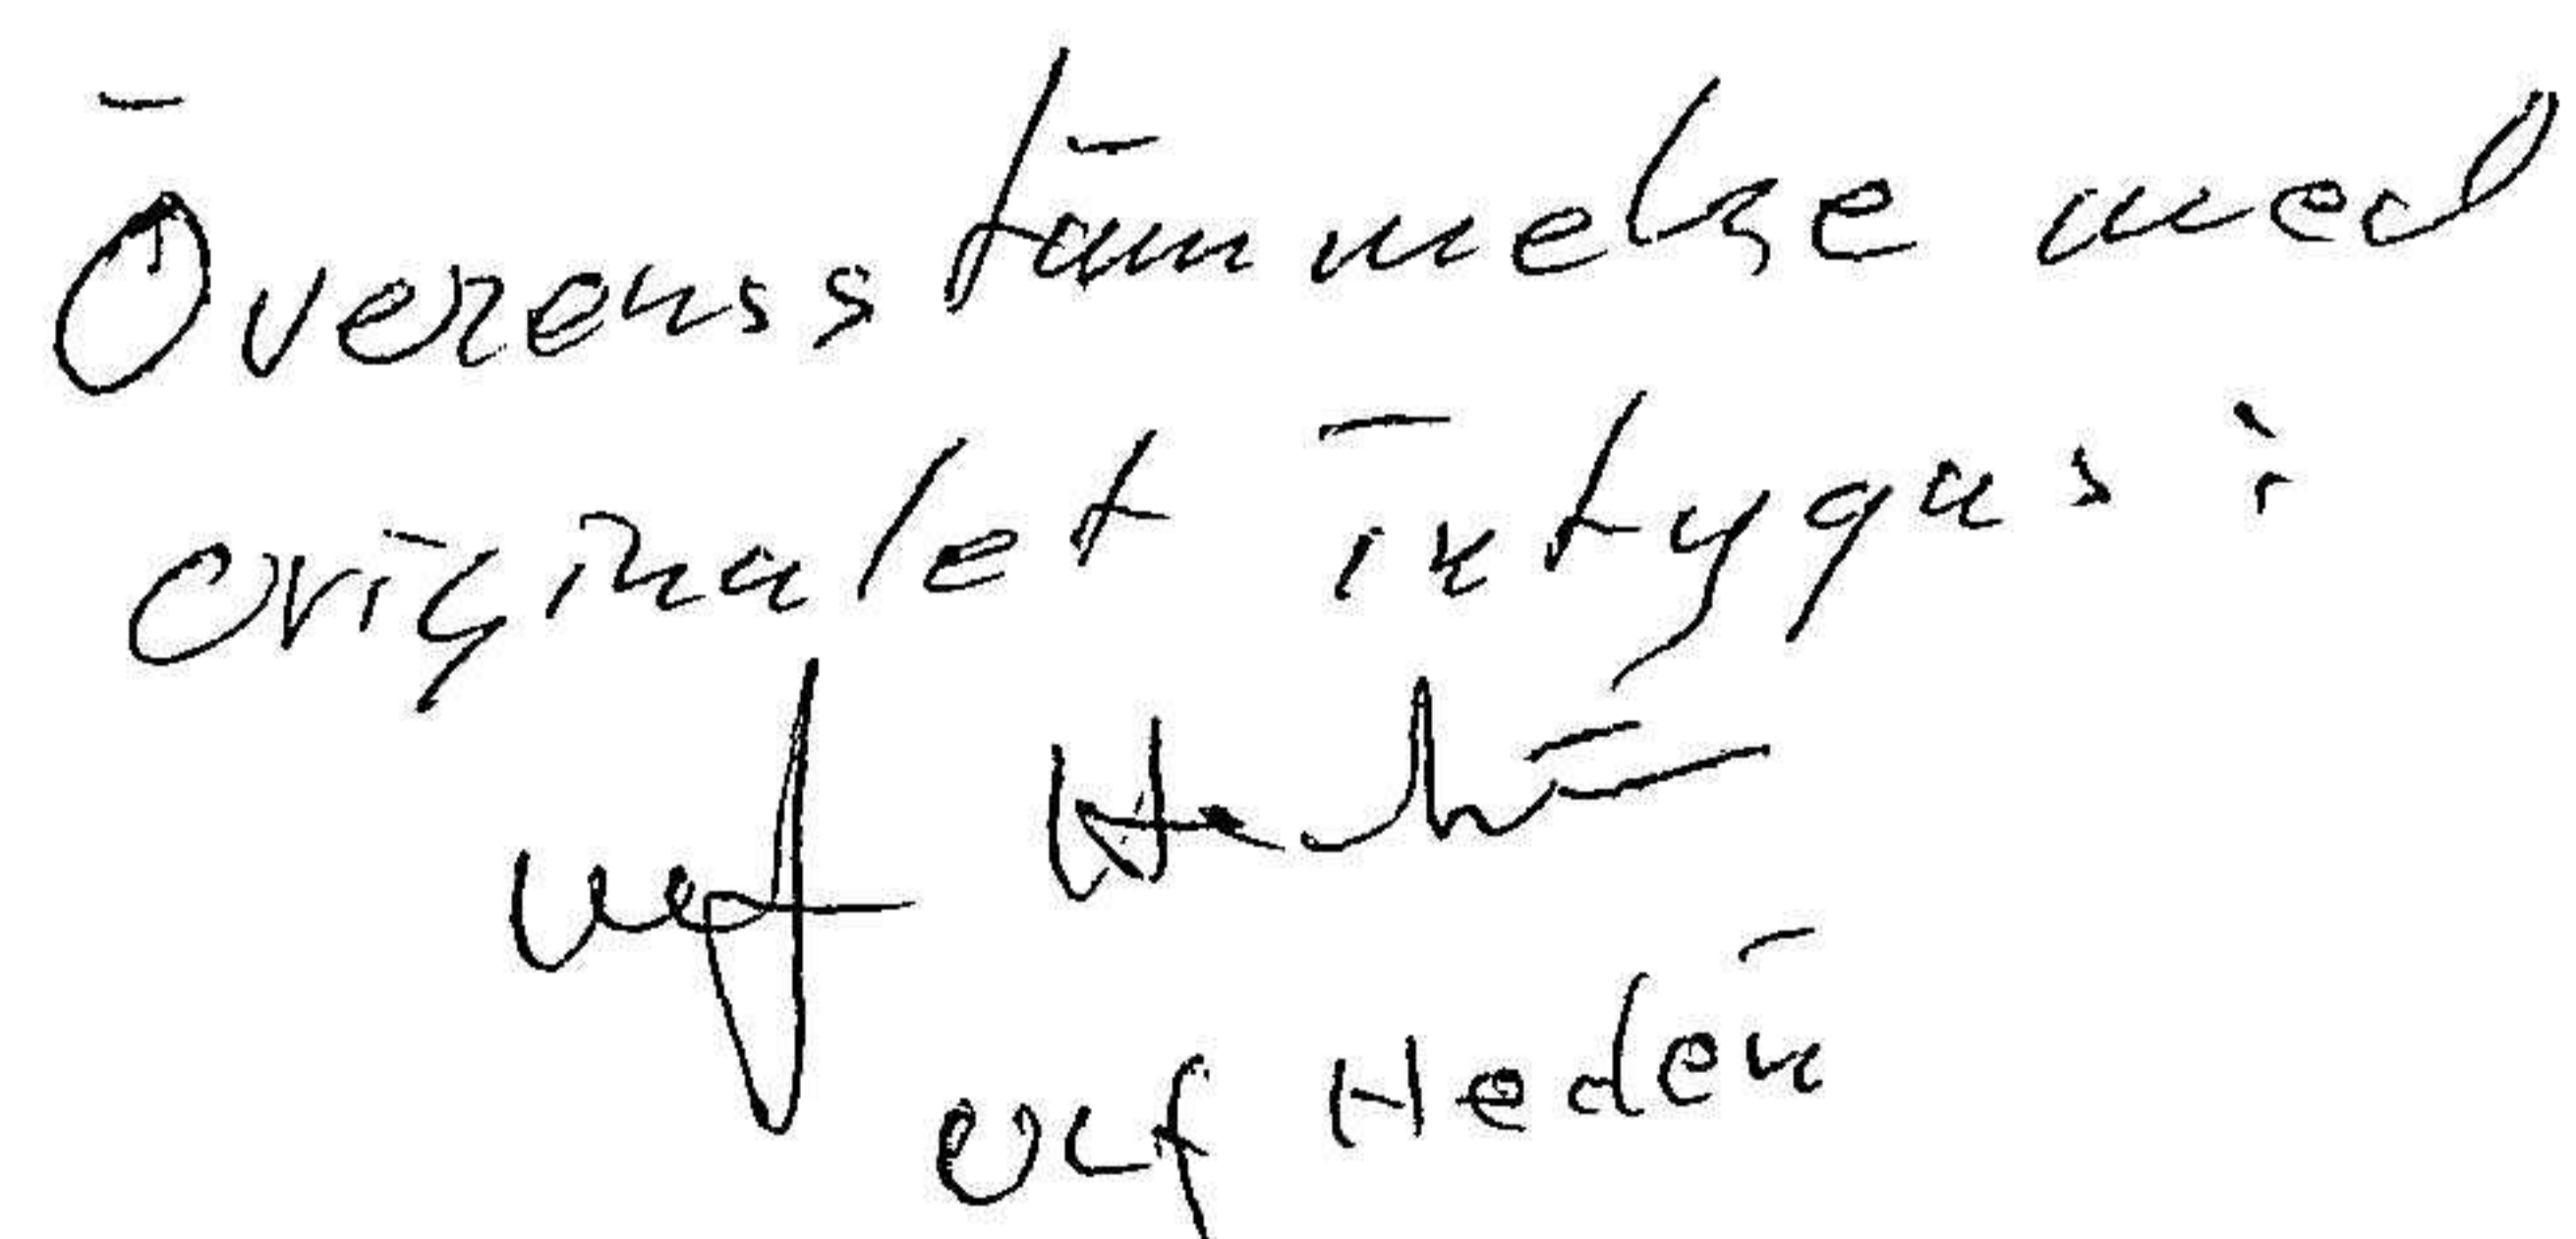 Överensstämmelse med
originalet intygas:
Ulf Hedén
Ulf Hedén